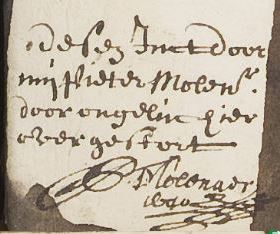 desen Inct door
mij Pieter Molenr.
door ongeluc hier
over gestort
P. Molenaer
1640